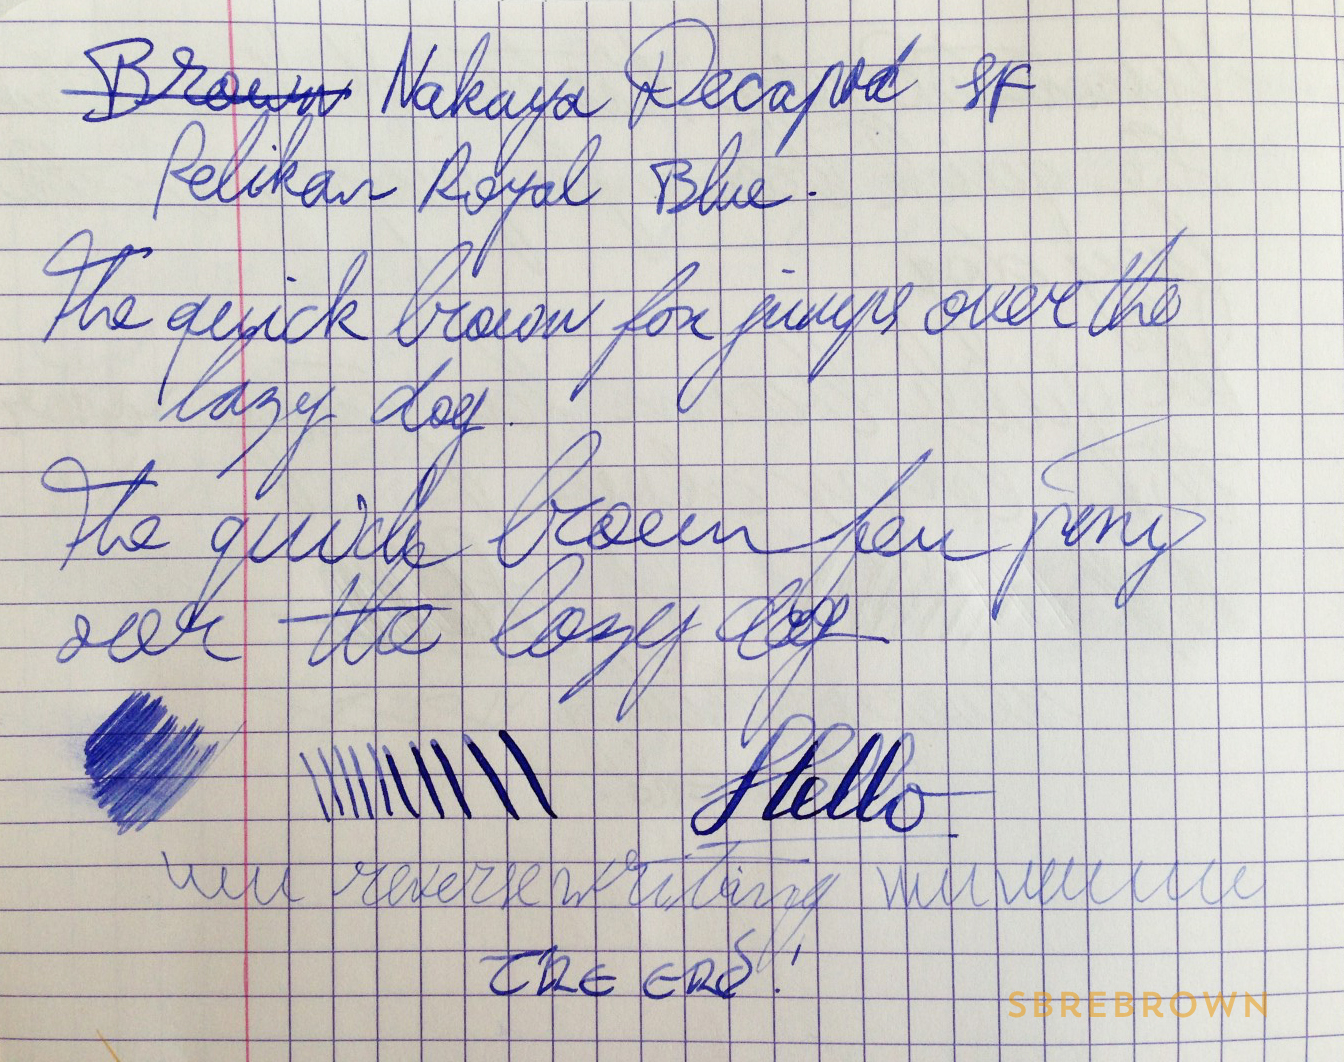 Brown Nakaya Decapod SF
Pelikan Royal Blue.
The quick brown fox jumps over the
lazy dog.
The quick brown fox jumps
over the lazy dog
Hello
reverse writing
THE END!
SBREBROWN